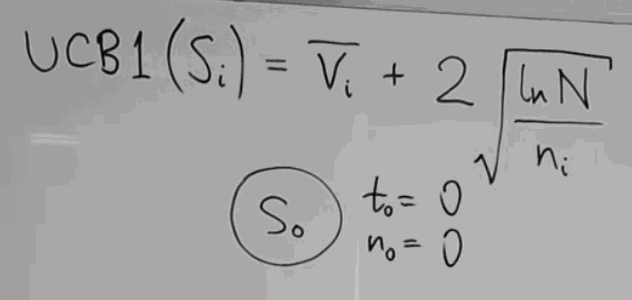 UCB1(Sᵢ) = V̅ᵢ + 2 √(ln N / nᵢ)
S₀ t₀ = 0
n₀ = 0